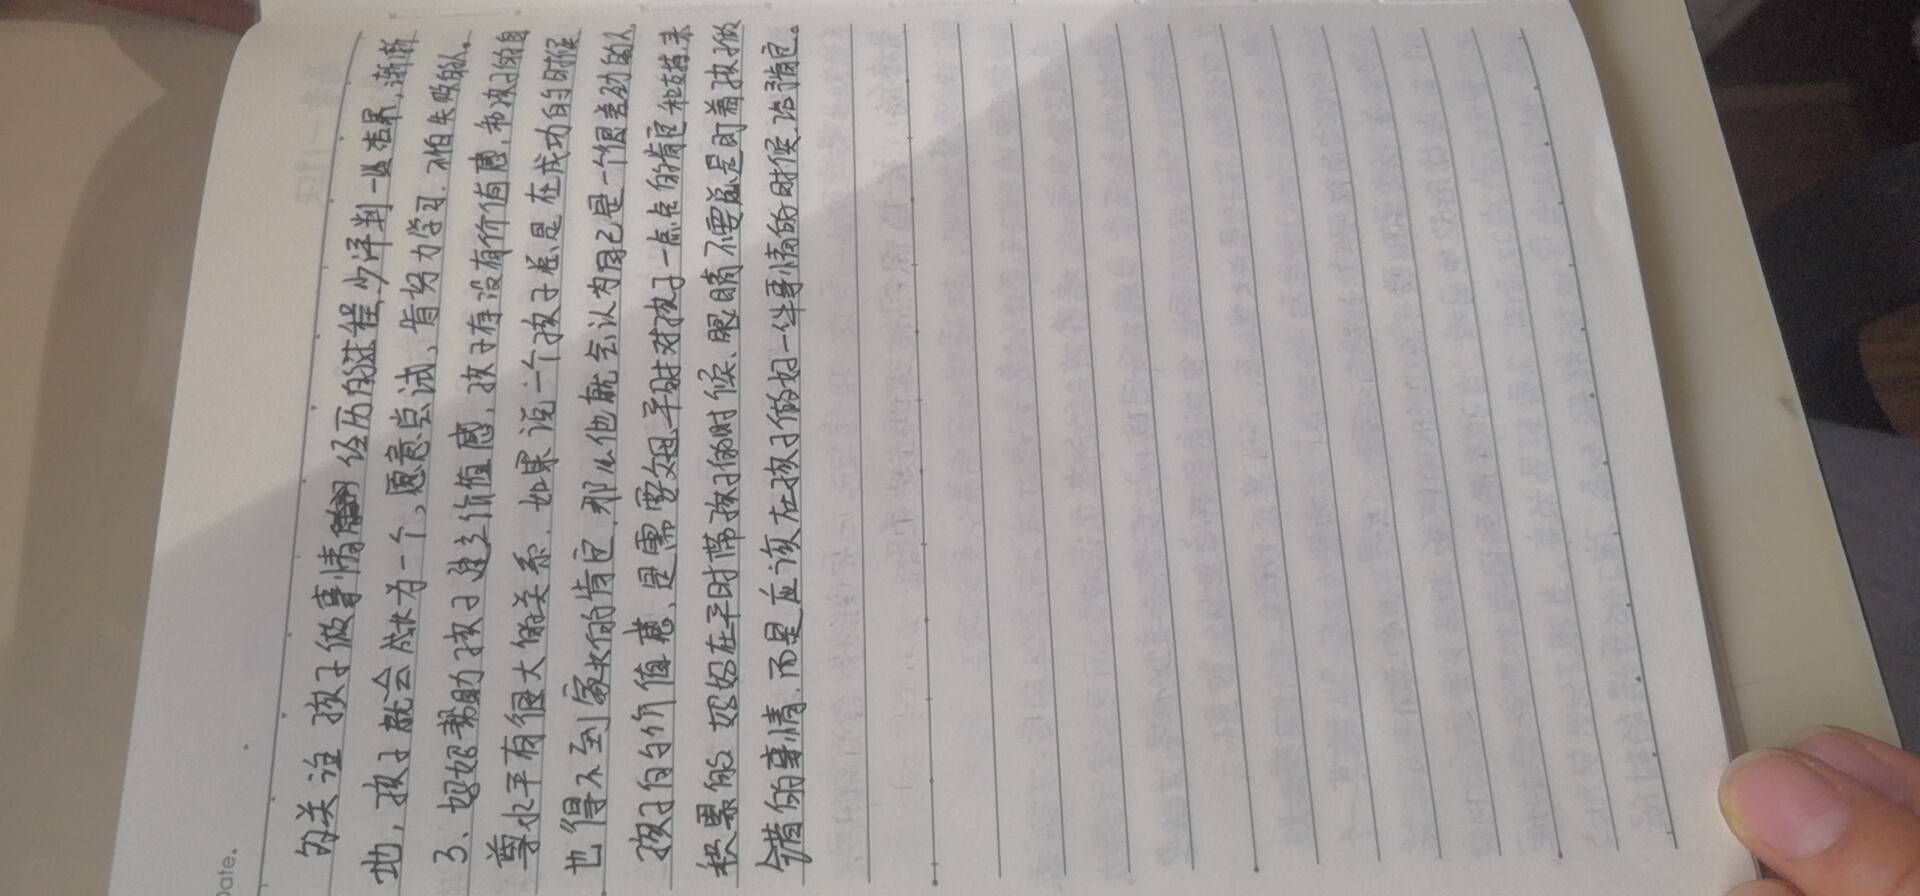 Date.
的关注 孩子做事情 经历的过程,少评判一些结果,渐渐
地,孩子就会成为一个,愿意尝试、肯努力学习.不怕失败的人。
3、妈妈帮助孩子建立价值感,孩子有没有价值感,和孩子的自
尊水平有很大的关系.如果说一个孩子总是在成功的时候
也得不到家长的肯定.那么他就会认为自己是一个很差劲的人
孩子的价值感,是需要妈平时对孩子一点点的肯定和支持来
积累的 妈妈在平时带孩子的时候、眼睛不要总是盯着孩子做
错的事情.而是应该在孩子做好一件事情的时候.给予肯定。